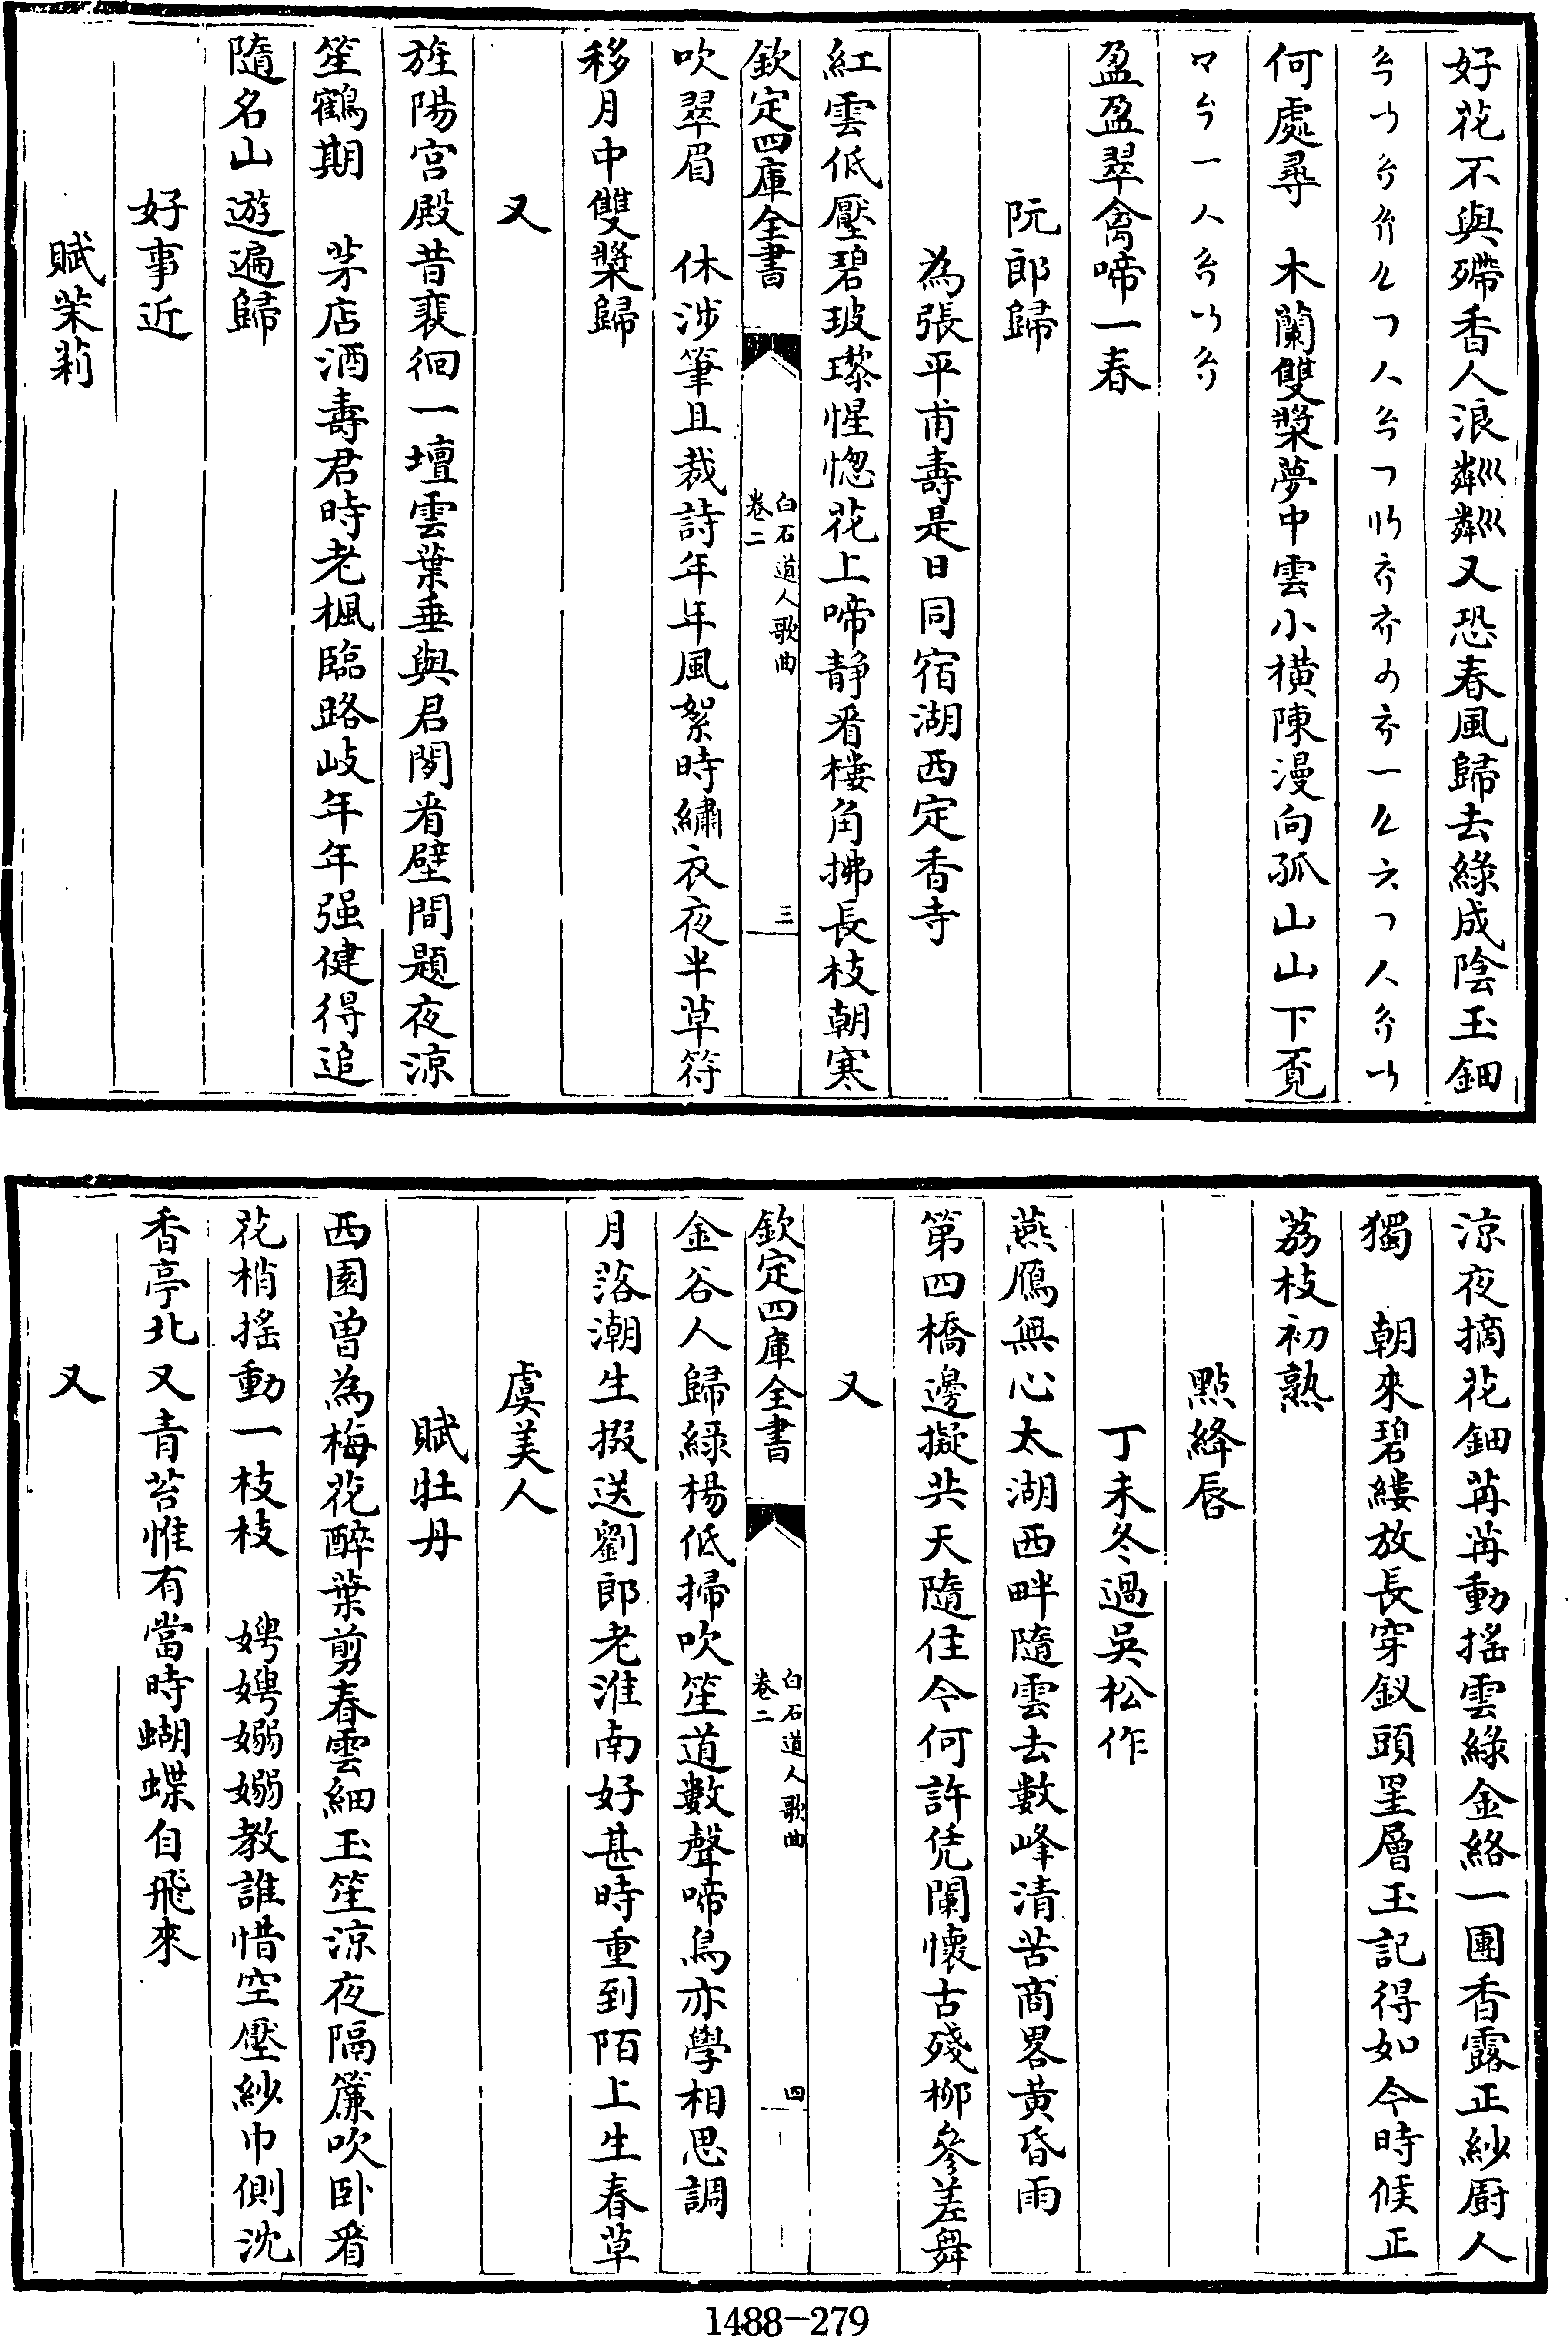 好花不與殢香人浪粼粼又恐春風歸去綠成陰玉鈿
何處尋　木蘭雙槳夢中雲小橫陳漫向孤山山下覓
盈盈翠禽啼一春
阮郎歸
為張平甫壽是日同宿湖西定香寺
紅雲低壓碧玻瓈惺惚花上啼靜看樓角拂長枝朝寒
欽定四庫全書
白石道人歌曲
卷二
三
吹翠眉　休涉筆且裁詩年年風絮時繡衣夜半草符
移月中雙槳歸
又
旌陽宮殿昔裴徊一壇雲葉垂與君閒看壁間題夜涼
笙鶴期　茅店酒壽君時老楓臨路岐年年强健得追
隨名山遊遍歸
好事近
賦茉莉
涼夜摘花鈿苒苒動搖雲綠金絡一團香露正紗廚人
獨　朝來碧縷放長穿釵頭罣層玉記得如今時候正
荔枝初熟
點絳唇
丁未冬過吳松作
燕鴈無心太湖西畔隨雲去數峰清苦商畧黃昏雨
第四橋邊擬共天隨住今何許凭闌懷古殘柳參差舞
又
欽定四庫全書
白石道人歌曲
卷二
四
金谷人歸綠楊低掃吹笙道數聲啼鳥亦學相思調
月落潮生掇送劉郎老淮南好甚時重到陌上生春草
虞美人
賦牡丹
西園曾為梅花醉葉剪春雲細玉笙涼夜隔簾吹卧看
花梢搖動一枝枝　娉娉嫋嫋教誰惜空壓紗巾側沈
香亭北又青苔惟有當時蝴蝶自飛來
又
1488-279